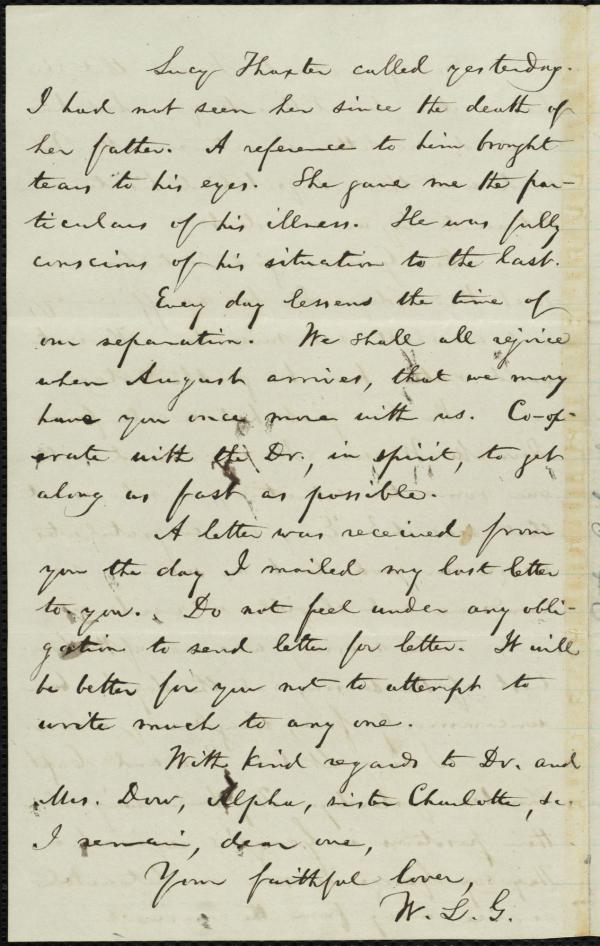 Lucy Thaxter called yesterday.
I had not seen her since the death of
her father. A reference to him brought
tears to his eyes. She gave me the par-
ticulars of his illness. He was fully
conscious of his situation to the last.
Every day lessens the time of
our separation. We shall all rejoice
when August arrives, that we may
have you once more with us. Co-op-
erate with the Dr., in spirit, to get
along as fast as possible.
A letter was received from
you the day I mailed my last letter
to you. Do not feel under any obli-
gation to send letter for letter. It will
be better for you not to attempt to
write much to any one.
With kind regards to Dr. and
Mrs. Dow, Alpha, sister Charlotte, &c.
I remain, dear one,
Your faithful lover,
W. L. G.